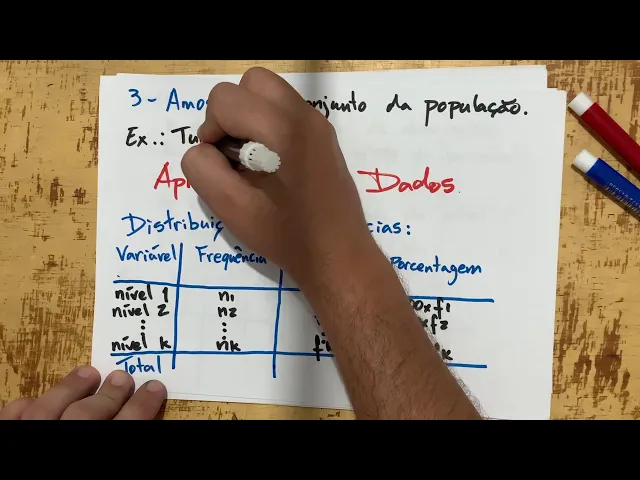 3 - Amos onjunto da população.
Ex.: Tu
Ap Dados.
Distribuiç cias:
Variável Frequência Porcentagem
nível 1 n1 00xf1
nível 2 n2 xf2
⋮ ⋮
nível k nk f k
Total